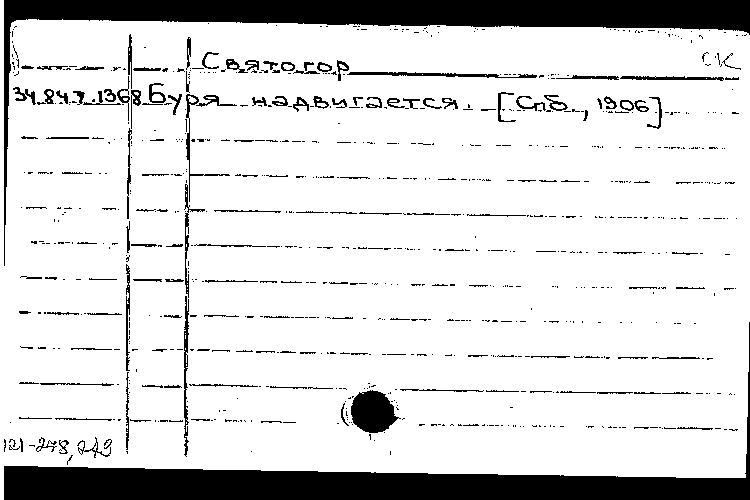 Святогор
СК
34.847.1368 Буря надвигается. [Спб., 1906]
121-248,249